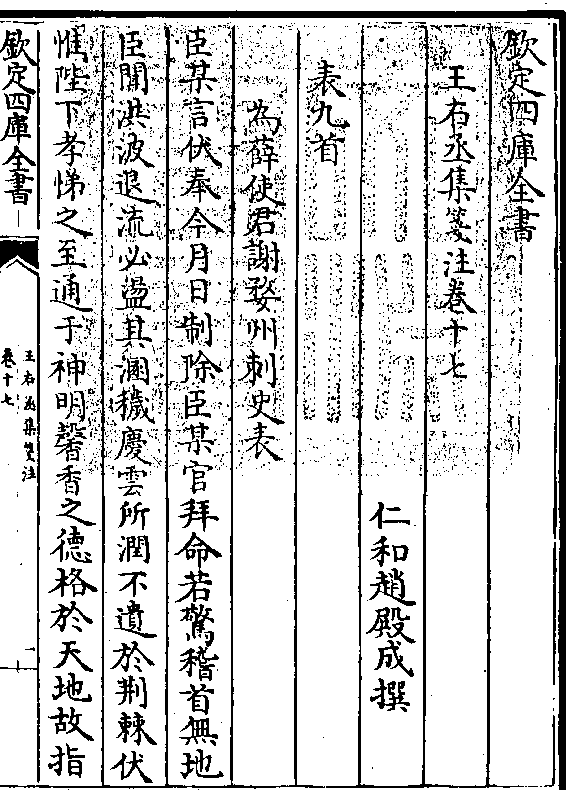 欽定四庫全書
王右丞集箋注卷十七
仁和趙殿成撰
表九首
為薛使君謝婺州刺史表
臣某言伏奉今月日制除臣某官拜命若驚稽首無地
臣聞洪波退流必盪其溷穢慶雲所潤不遺於荆棘伏
惟陛下孝悌之至通于神明馨香之德格於天地故指
欽定四庫全書
王右丞集箋注
卷十七
一